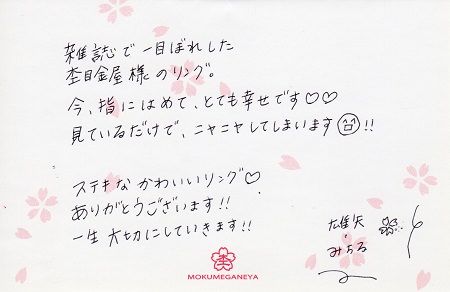 雑誌で一目ぼれした
杢目金屋様のリング。
今、指にはめて、とても幸せです♡♡
見ているだけで、ニヤニヤしてしまいます!!
ステキなかわいいリング♡
ありがとうございます!!
一生大切にしていきます!!
雄矢
・
みちる
MOKUMEGANEYA